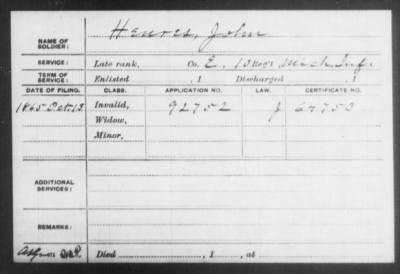 NAME OF SOLDIER: John
SERVICE: Late rank, Co. E, 13 Reg't Mich. Inf.
TERM OF SERVICE: Enlisted , 1 Discharged , 1
DATE OF FILING. CLASS. APPLICATION NO. LAW. CERTIFICATE NO.
1865 Oct. 13 Invalid, 92752 64753
Widow,
Minor,
ADDITIONAL SERVICES:
REMARKS:
Died , 1 , at